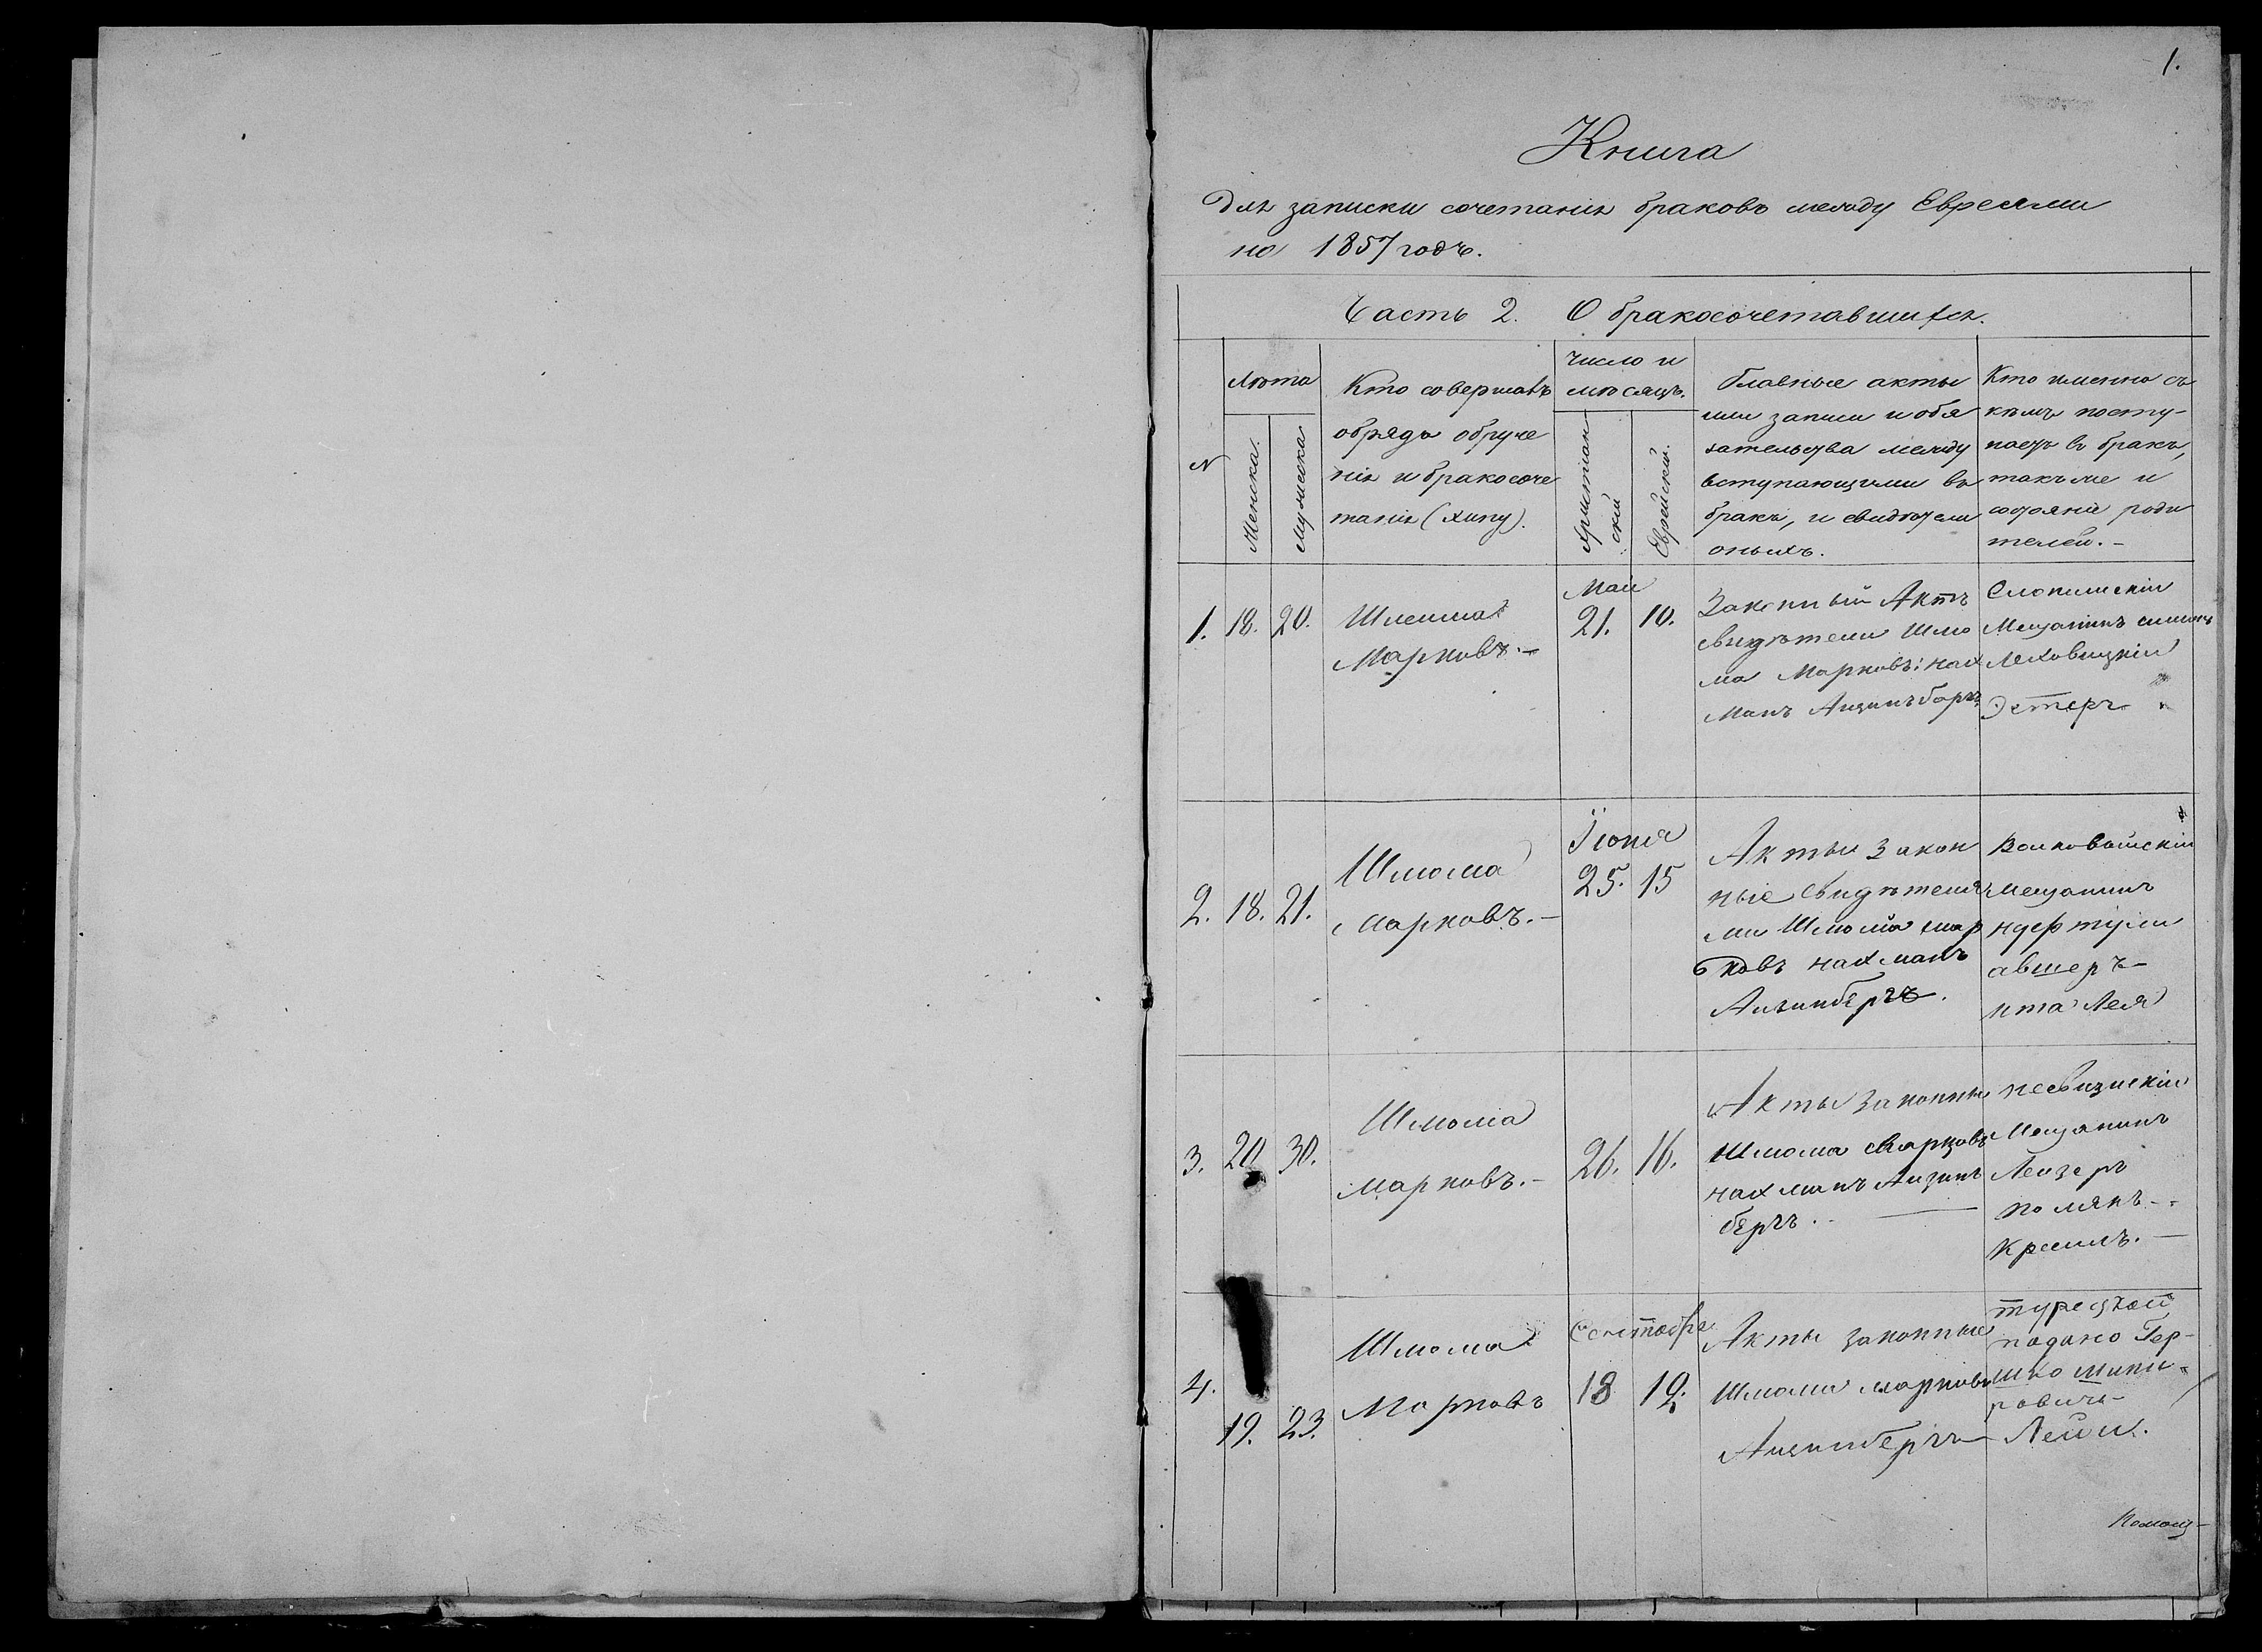 1.
Книга
для записки сочетанія браковъ между Евреями
на 1857 годъ.
Часть 2. О бракосочетавшихся.
N
Лѣта
Женска.
Мужеска
Кто совершалъ
обрядъ обруче
нія и бракосоче
танія (хипу).
Число и
мѣсяцъ.
Христіан
скій
Еврейскій.
Главные акты
или записи и обя
зательства между
вступающими въ
бракъ, и свидѣтели
оныхъ.
Кто именно съ
кѣмъ посту-
паетъ въ бракъ,
такъ же и
состояніе роди
телей.-
1. 18. 20.
Шлеима
Марковъ.-
Май
21. 10.
Законый Актъ
свидѣтели Шло
ма Марковъ: нах
манъ
Слонимскій
Мещанинъ
Леховицкій
Эстеръ
2. 18. 21.
Шлома
Марковъ.-
Іюня
25. 15
Акты Закон
ные Свидѣтеля
ми Шлома мар
ковъ нахманъ
Волковыйскій
мещанинъ
Лея
3. 20 30.
Шлома
Марковъ.-
26. 16.
Акты законны
Шлома Марковъ
нахманъ Айзинъ
бергъ.
несвизскій
Мещанинъ
Лейзеръ
4. 19. 23.
Шлома
Марковъ
Сентября
18 12.
Акты законные
Шлома марковъ
турецкой
подано Гер-
шко
ровичъ